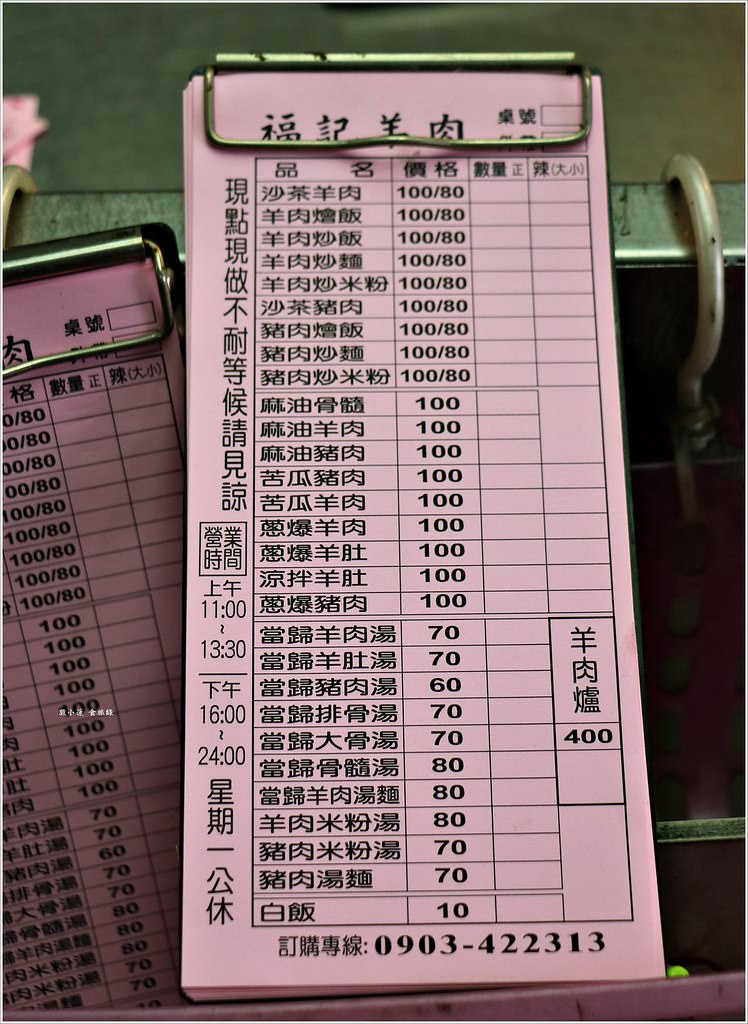 福記羊肉
桌號
外帶
品名 價格 數量正 辣(大小)
沙茶羊肉 100/80
羊肉燴飯 100/80
羊肉炒飯 100/80
羊肉炒麵 100/80
羊肉炒米粉 100/80
沙茶豬肉 100/80
豬肉燴飯 100/80
豬肉炒麵 100/80
豬肉炒米粉 100/80
麻油骨髓 100
麻油羊肉 100
麻油豬肉 100
苦瓜豬肉 100
苦瓜羊肉 100
蔥爆羊肉 100
蔥爆羊肚 100
涼拌羊肚 100
蔥爆豬肉 100
當歸羊肉湯 70
當歸羊肚湯 70
當歸豬肉湯 60
當歸排骨湯 70
當歸大骨湯 70
當歸骨髓湯 80
當歸羊肉湯麵 80
羊肉米粉湯 80
豬肉米粉湯 70
豬肉湯麵 70
白飯 10
羊肉爐
400
現點現做不耐等候請見諒
營業
時間
上午
11:00
~
13:30
下午
16:00
~
24:00
星期一公休
訂購專線:0903-422313
肉
桌號
外帶
格 數量正 辣(大小)
0/80
/80
00/80
00/80
100/80
100/80
100/80
100/80
100/80
100
100
100
100
100
肉 100
肚 100
肚 100
豬肉 100
羊肉湯 70
羊肚湯 70
豬肉湯 60
排骨湯 70
歸大骨湯 70
歸骨髓湯 80
歸羊肉湯麵 80
肉米粉湯 80
肉米粉湯 70
肉湯麵 70
10